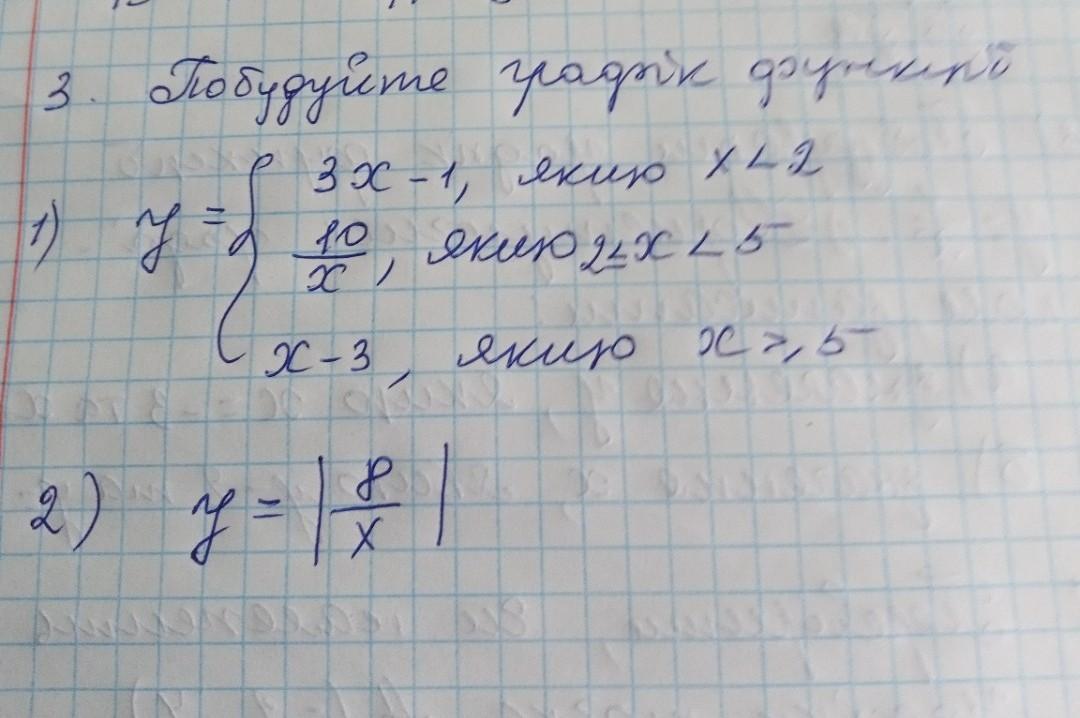 3. Побудуйте графік функції
1) y = { 3x - 1, якщо x < 2
10/x, якщо 2 ≤ x < 5
x - 3, якщо x ≥ 5
2) y = |8/x|